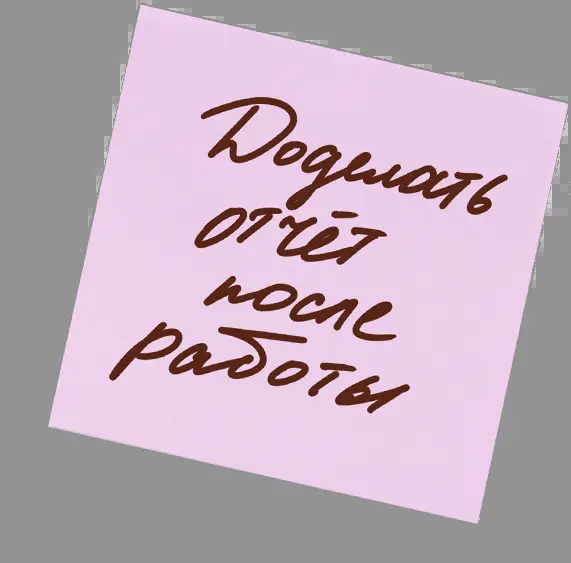 Доделать
отчёт
после
работы